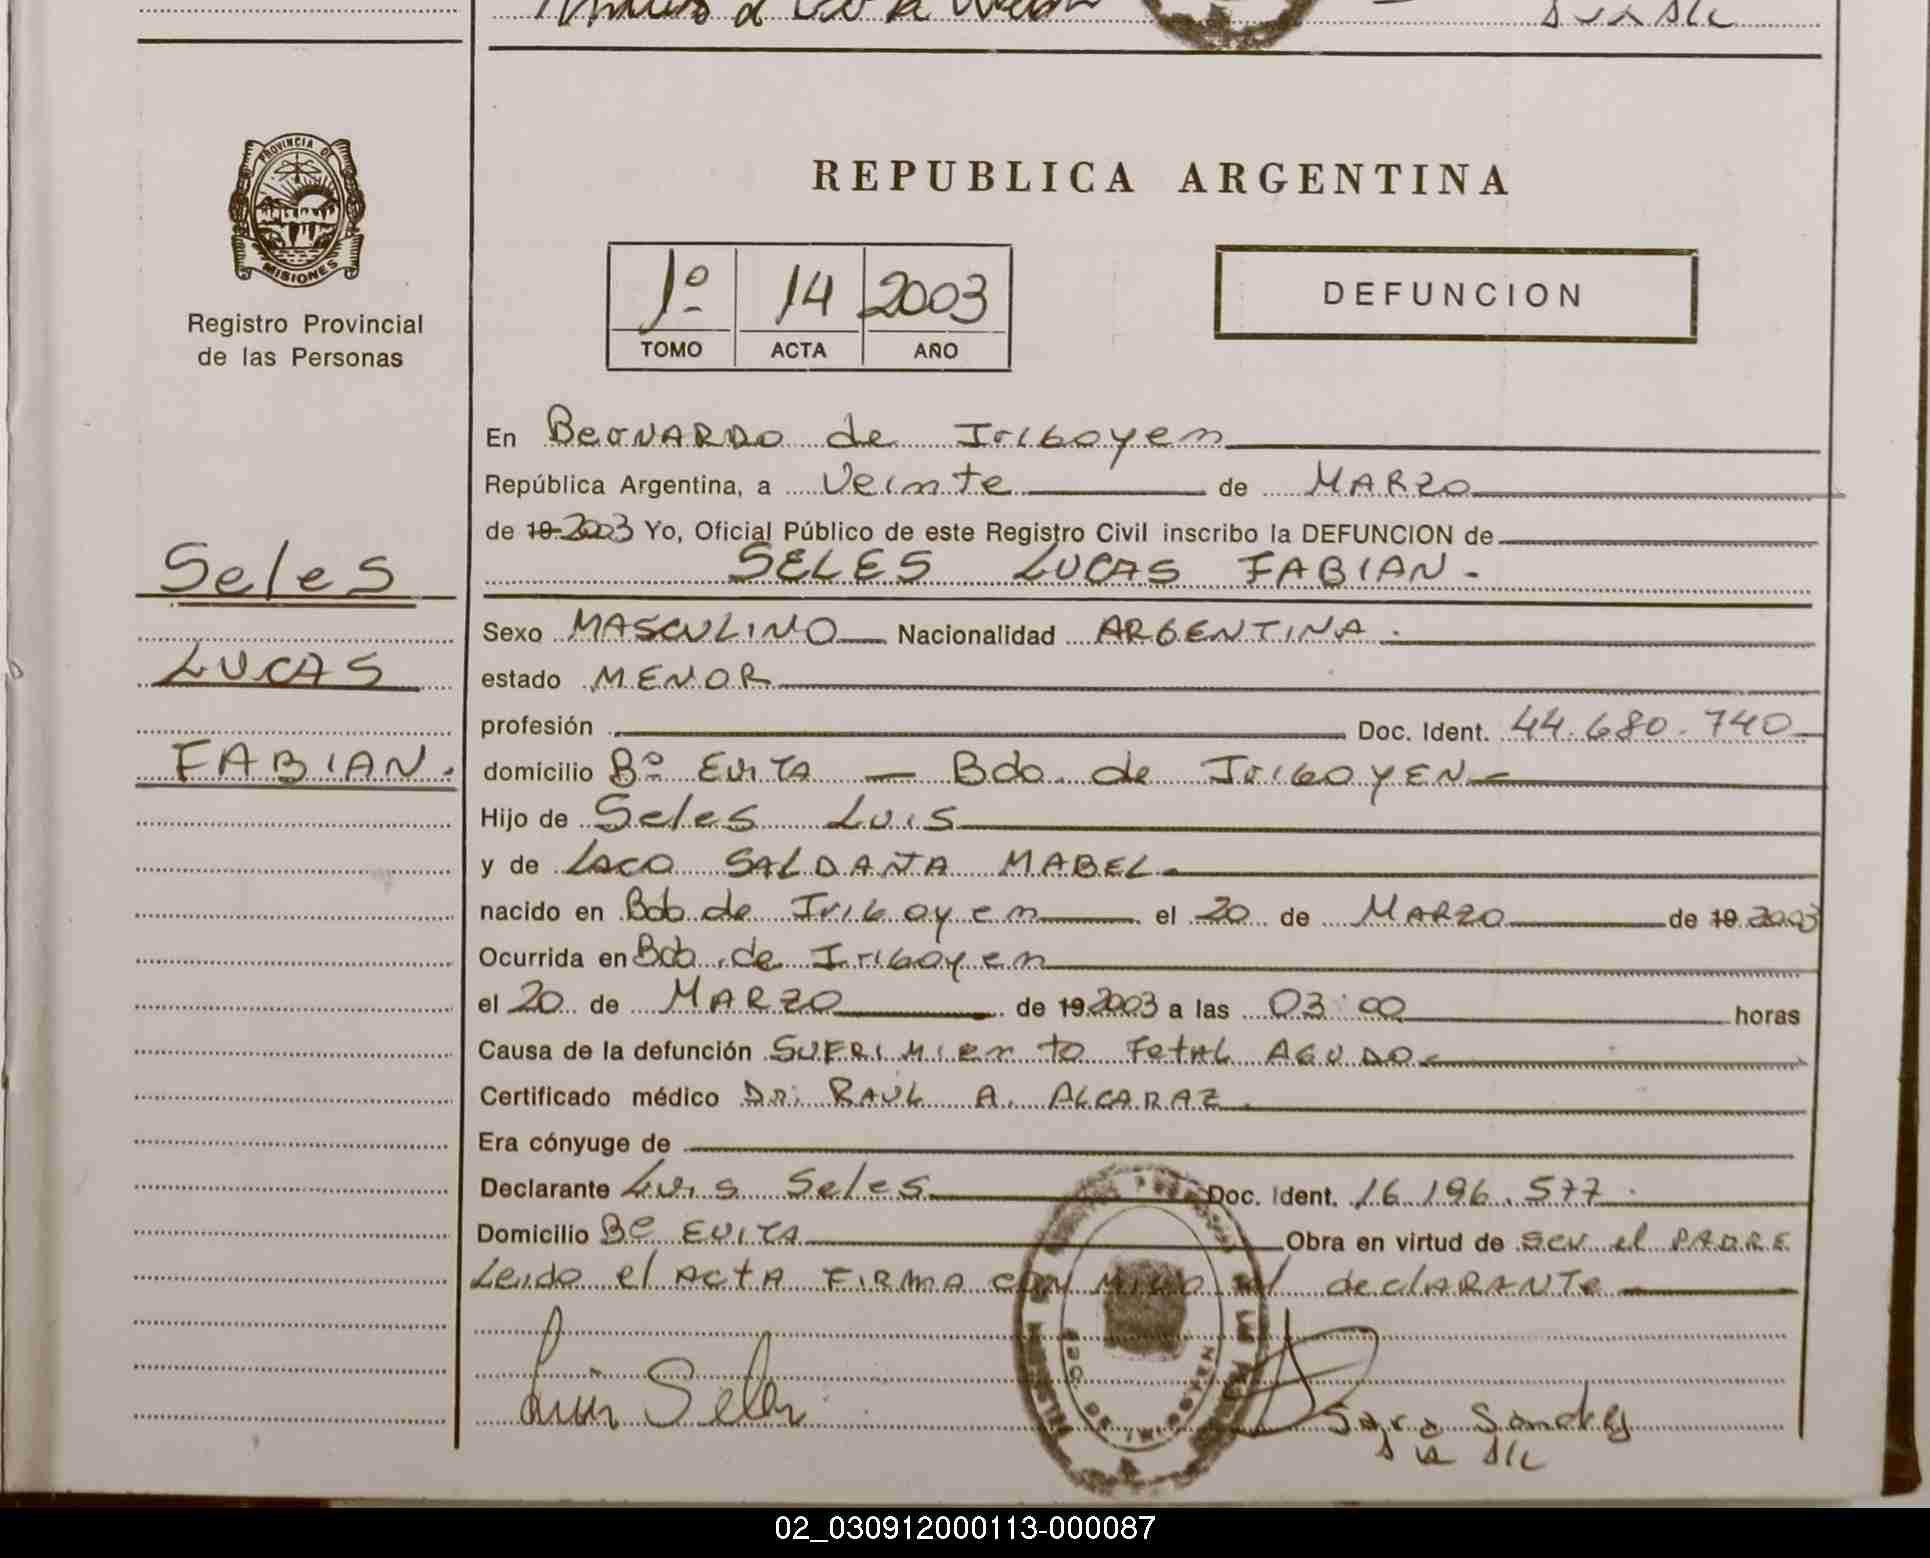 PROVINCIA DE
MISIONES
Registro Provincial
de las Personas
Seles
LUCAS
FABIAN.
REPUBLICA ARGENTINA
1º 14 2003
TOMO ACTA AÑO
DEFUNCION
En Bernardo de Irigoyen
República Argentina, a Veinte de MARZO
de 19 2003 Yo, Oficial Público de este Registro Civil inscribo la DEFUNCION de
SELES LUCAS FABIAN.-
Sexo MASCULINO Nacionalidad ARGENTINA.
estado MENOR
profesión Doc. Ident. 44.680.740
domicilio Bº EVITA - Bdo. de IrigoYEN
Hijo de Seles Luis
y de SALDAÑA MABEL
nacido en Bdo de Irigoyen el 20 de MARZO de 19 2003
Ocurrida en Bdo. de Irigoyen
el 20 de MARZO de 19 2003 a las 03:00 horas
Causa de la defunción SUFRIMIENTO FetAL AGUDO.
Certificado médico Dr. RAUL A. ALCARAZ.
Era cónyuge de
Declarante Luis Seles Doc. Ident. 16.196.577.
Domicilio Bº EVITA Obra en virtud de ser el PADRE
Leido el ActA FIRMA CON MIGO el declARANTe
Luis Seles
BDO. DE IRIGOYEN
Sara
02_030912000113-000087